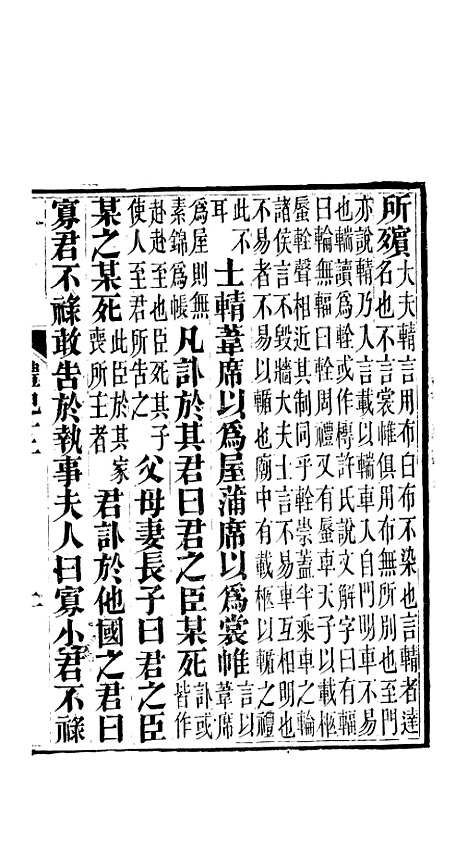 所殯
大夫輤言用布白布不染也言輤者達
名也不言裳帷俱用布無所別也至門
亦說輤乃入言載以輲車入自門明車不易
也輲讀爲輇或作槫許氏說文解字曰有輻
曰輪無輻曰輇周禮又有蜃車天子以載柩
蜃輇聲相近其制同乎輇崇蓋半乘車之輪
諸侯言不毀牆大夫士言不易車互相明也
不易者不易以輴也廟中有載柩以輴之禮
此不
耳
士輤葦席以爲屋蒲席以爲裳帷
言以
葦席
爲屋則無
素錦爲帳
凡訃於其君曰君之臣某死
訃或
皆作
赴赴至也臣死其子
使人至君所告之
父母妻長子曰君之臣
某之某死
此臣於其家
喪所主者
君訃於他國之君曰
寡君不祿敢告於執事夫人曰寡小君不祿
禮記十二